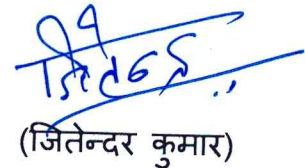 जितेन्द्र
(जितेन्दर कुमार)